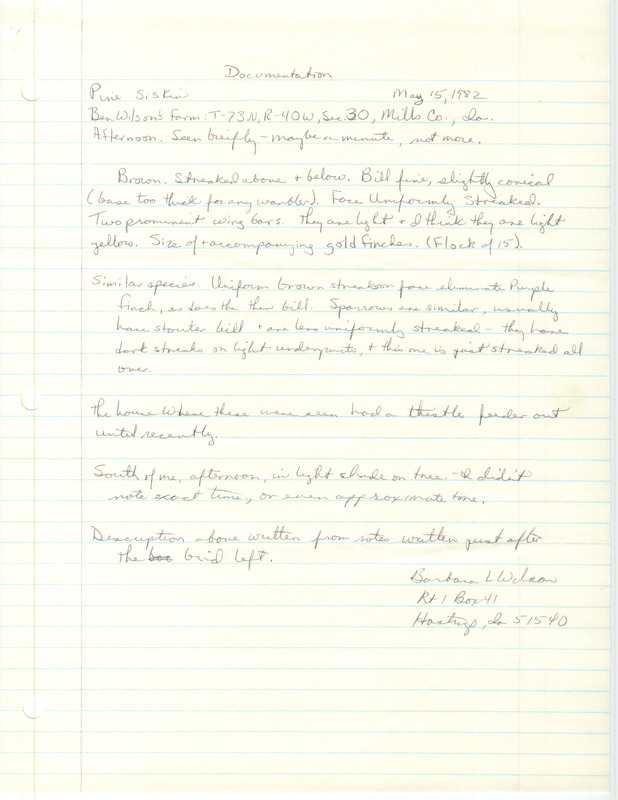 Documentation
Pine Siskin May 15, 1982
Ben Wilson's Farm: T-73N, R-40W, Sec. 30, Mills Co., Ia.
Afternoon. Seen breifly - maybe a minute, not more.
Brown. Streaked above + below. Bill fine, slightly conical
(base too thick for any warbler). Face Uniformly Streaked.
Two prominent wing bars. They are light + I think they are light
yellow. Size of accompanying gold finches. (Flock of 15).
Similar species. Uniform brown streaks on face eliminate Purple
finch, as does the thin bill. Sparrows are similar, usually
have stouter bill + are less uniformly streaked - they have
dark streaks on light underparts, + this one is just streaked all
over.
The house where these were seen had a thistle feeder out
until recently.
South of me, afternoon, in light shade on tree. - I didn't
note exact time, or even approximate time.
Description above written from notes written just after
the bird left.
Barbara L Wilson
Rt 1 Box 41
Hastings, Ia 51540